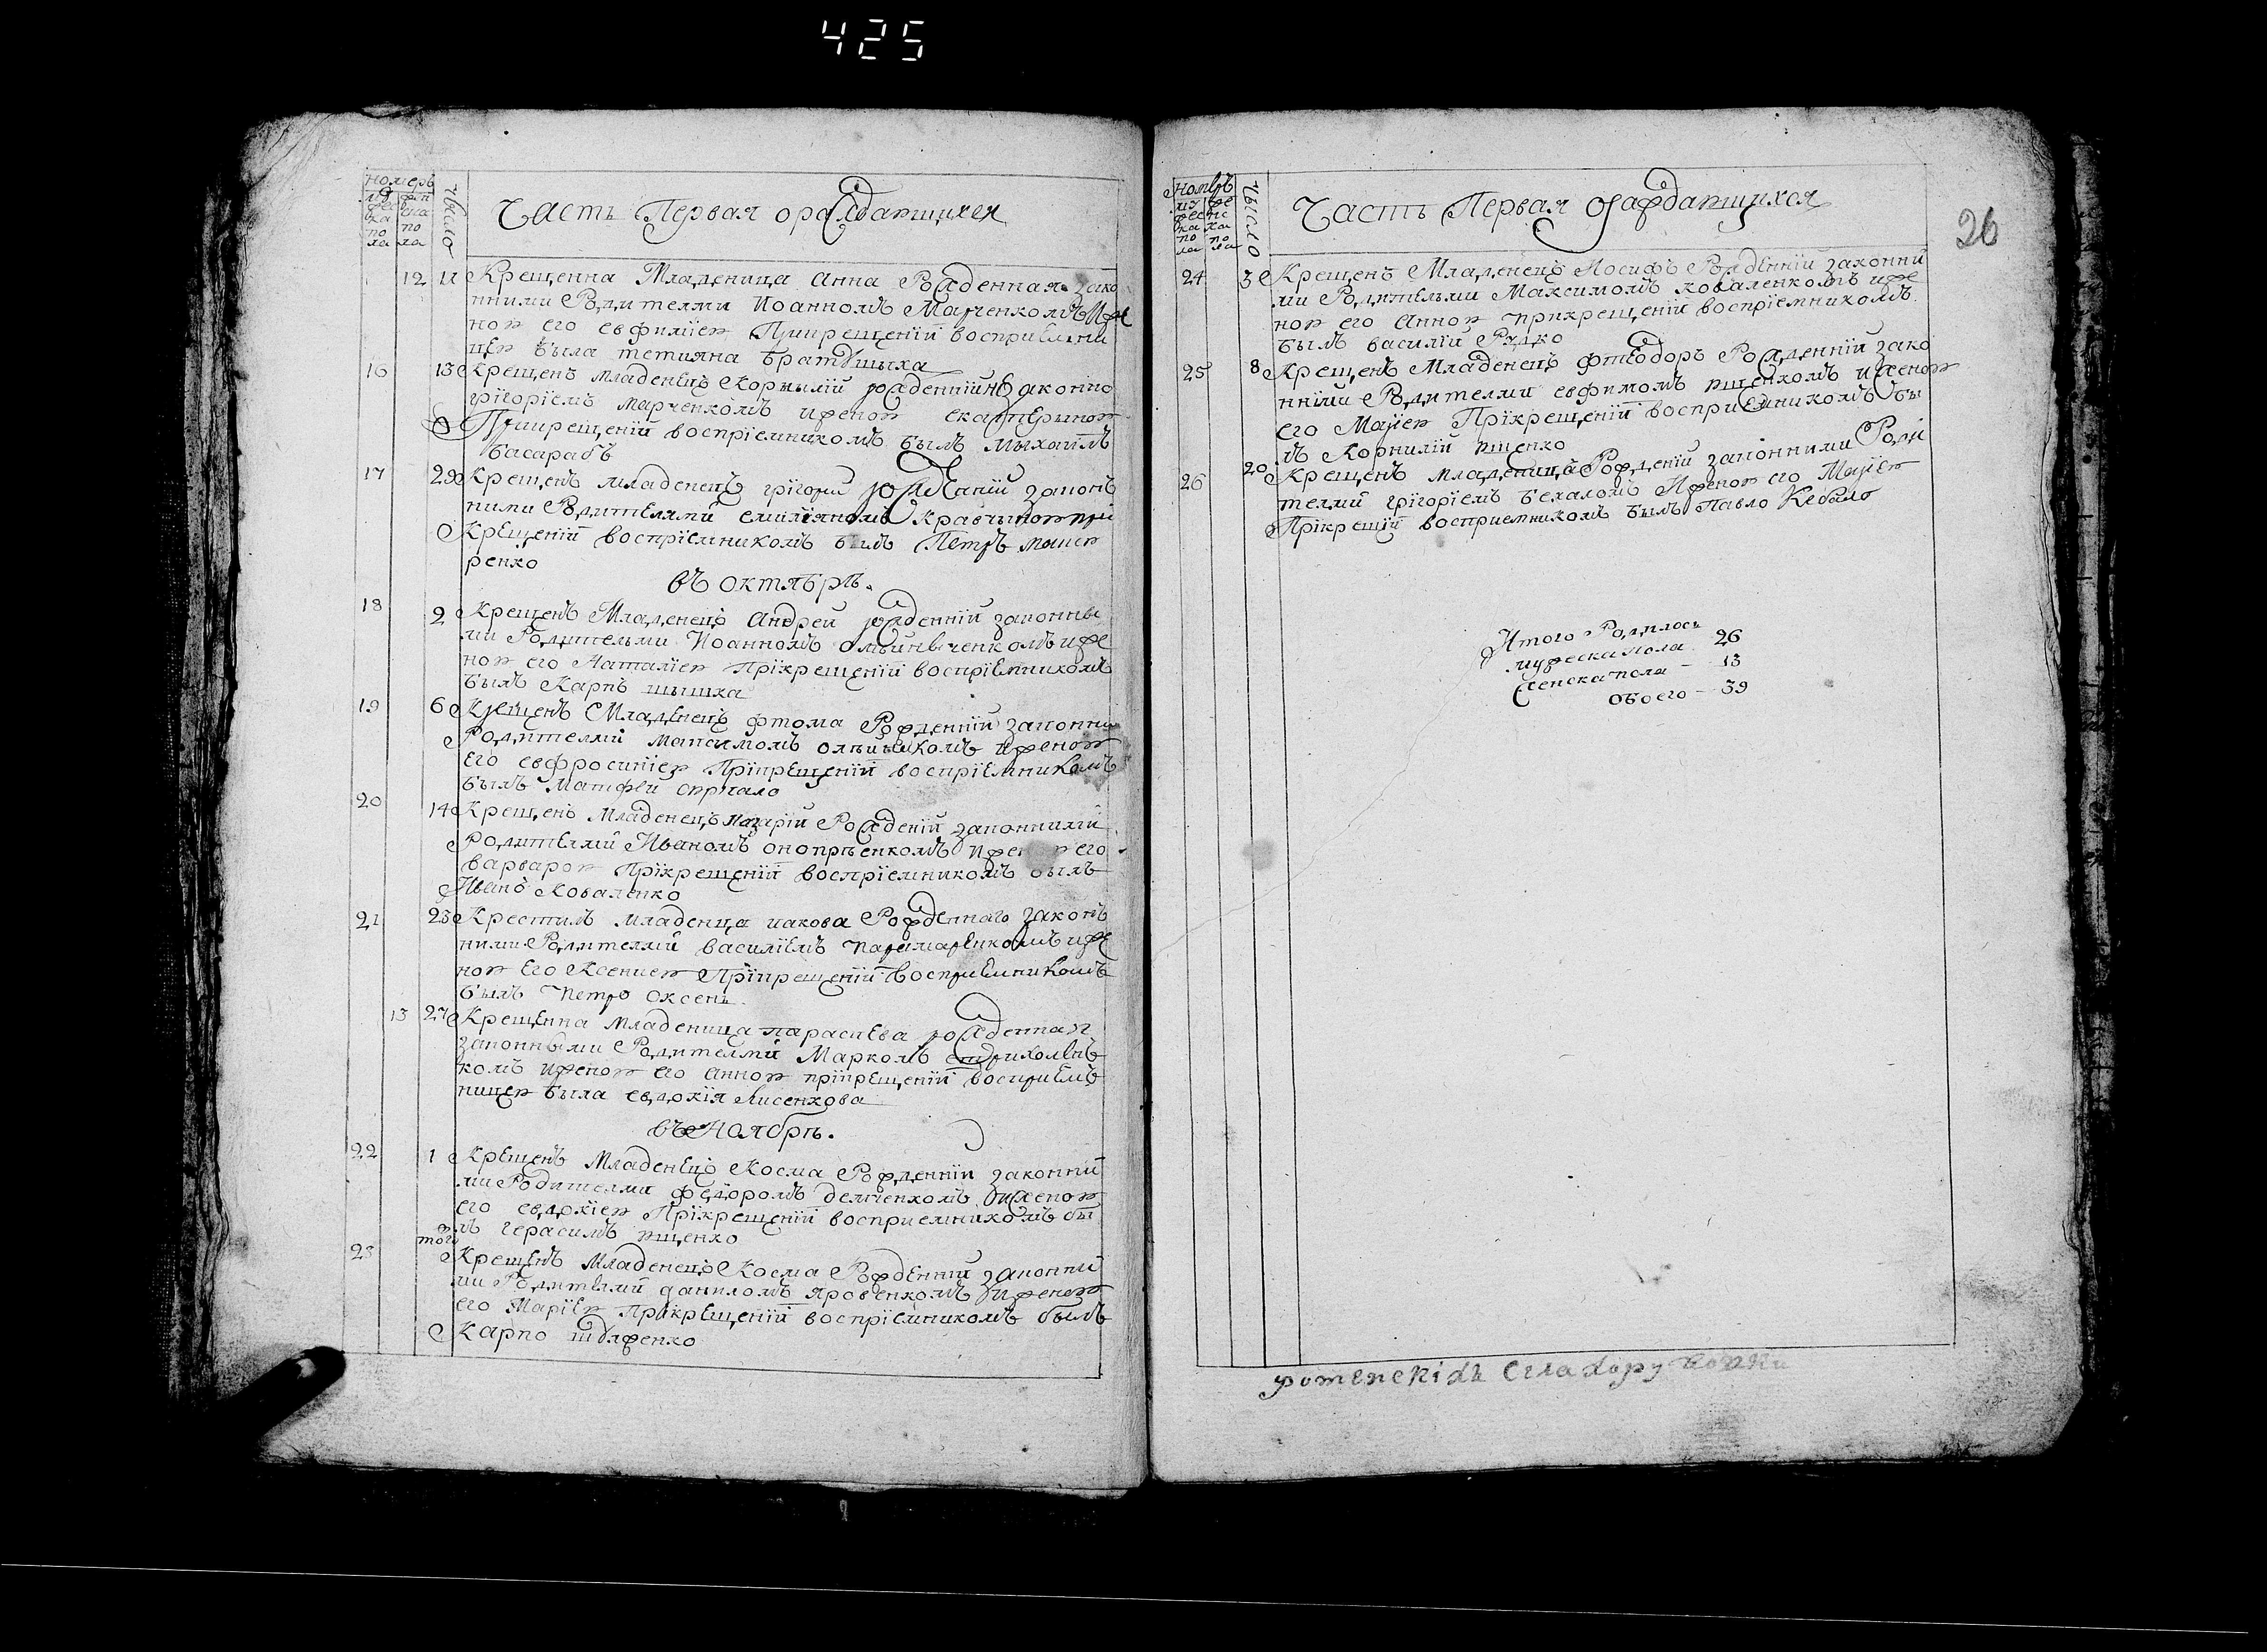 425
номеръ
число
Часть Первая о раждавшихся
12 11 Крещенна Младеница Анна Рожденная зако
нними Родителми Иоанномъ Марченкомъ И же
ною его евфимїею При крещенїй воспрїемни
цею была тетияна братвшыха
16 13 Крещенъ младенецъ Корнылїй рожденнїй законно
грїгорїемъ марченкомъ и женою екатерыною
При крещенїй воспрїемникомъ былъ мыхаилъ
басарабъ
17 29 Крещенъ младенецъ грїгорій рожденнїй законъ
ними Родителямй емилїяномъ Кравчыною при
Крещенїй воспрїемникомъ былъ Петръ
ренко
въ октябрѣ.
18 2 Крещенъ Младенецъ Андрей рожденнїй законны
ми Родительми Иоанномъ и же
ною его Наталїею При крещенїй воспрїемникомъ
былъ Карпъ шышка
19 6 Крещенъ Младенецъ фтома Рожденнїй законни
Родителмй Максимомъ и женою
его евфросинїею При крещенїй воспрїемникомъ
былъ Матфей
20 14 Крещенъ Младенецъ Назарїй Рожденїй законнимй
родителмй Иваномъ онопрѣенкомъ и женою его
варварою При крещенїй воспрїемникомъ былъ
Иванъ Коваленко
21 23 Крестилъ младенца иакова Рожденнаго законъ
ними Родителмй василїемъ и же
ною Его Ксениею При крещенїй воспрїемникомъ
былъ Петро оксень
13 27 Крещенна Младеница параскева рожденная
законными Родителмй Маркомъ
комъ и женою его анною при крещенїй воспрїемъ
ницею была евдокїя лисенкова
въ Ноябрѣ.
22 1 Крещенъ Младенецъ Косма Рожденнїй законнй
ми Родителми федоромъ демченкомъ и женою
его евдокїею При крещенїй воспрїемникомъ бы
лъ герасимъ ященко
23 того Крещенъ Младенецъ Косма Рожденнїй законнй
ми Родителмй даниломъ яровенкомъ и женою
его Марїею При крещенїй воспрїемникомъ былъ
Карпо
26
номеръ
число
Часть Первая о раждавшихся
24 3 Крещенъ Младенецъ Иосифъ Рожденнїй законнй
ми Родительми Максимомъ коваленкомъ и же
ною его Анною при крещенїй воспрїемникомъ
былъ василїй Рудко
25 8 Крещенъ Младенецъ фтеодоръ Рожденнїй зако
ннїми Родителми евфимомъ ященкомъ и женою
его Марїею При крещенїй воспрїемникомъ бы
лъ Корнилїй ященко
26 20 Крещенъ младеницъ Рожденїй законними Роди
телмй грїгорїемъ бекаломъ И женою его Марїею
При крещїй воспрїемникомъ былъ Павло Кебало
Итого Родилось
мужеска пола 26
женска пола — 13
обоего — 39